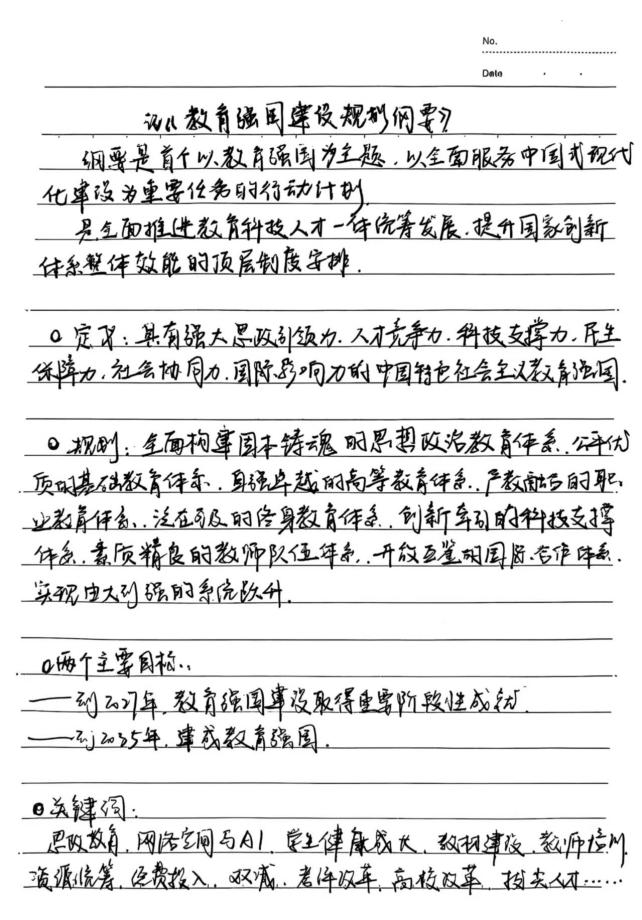 No.
Date
论《教育强国建设规划纲要》
纲要是首个以教育强国为主题，以全面服务中国式现代
化建设为重要任务的行动计划.
是全面推进教育科技人才一体统筹发展、提升国家创新
体系整体效能的顶层制度安排.
定义：具有强大思政引领力、人才竞争力、科技支撑力、民生
保障力、社会协同力、国际影响力的中国特色社会主义教育强国.
规划：全面构建固本铸魂的思想政治教育体系、公平优
质的基础教育体系、自强卓越的高等教育体系、产教融合的职
业教育体系、泛在可及的终身教育体系、创新牵引的科技支撑
体系、素质精良的教师队伍体系、开放互鉴的国际合作体系.
实现由大到强的系统跃升.
两个主要目标：
——到2027年，教育强国建设取得重要阶段性成就.
——到2035年，建成教育强国.
关键词：
思政教育、网络空间与AI、学生健康成大、教材建设、教师培训
资源统筹、经费投入、双减、考评改革、高校改革、拔尖人才……